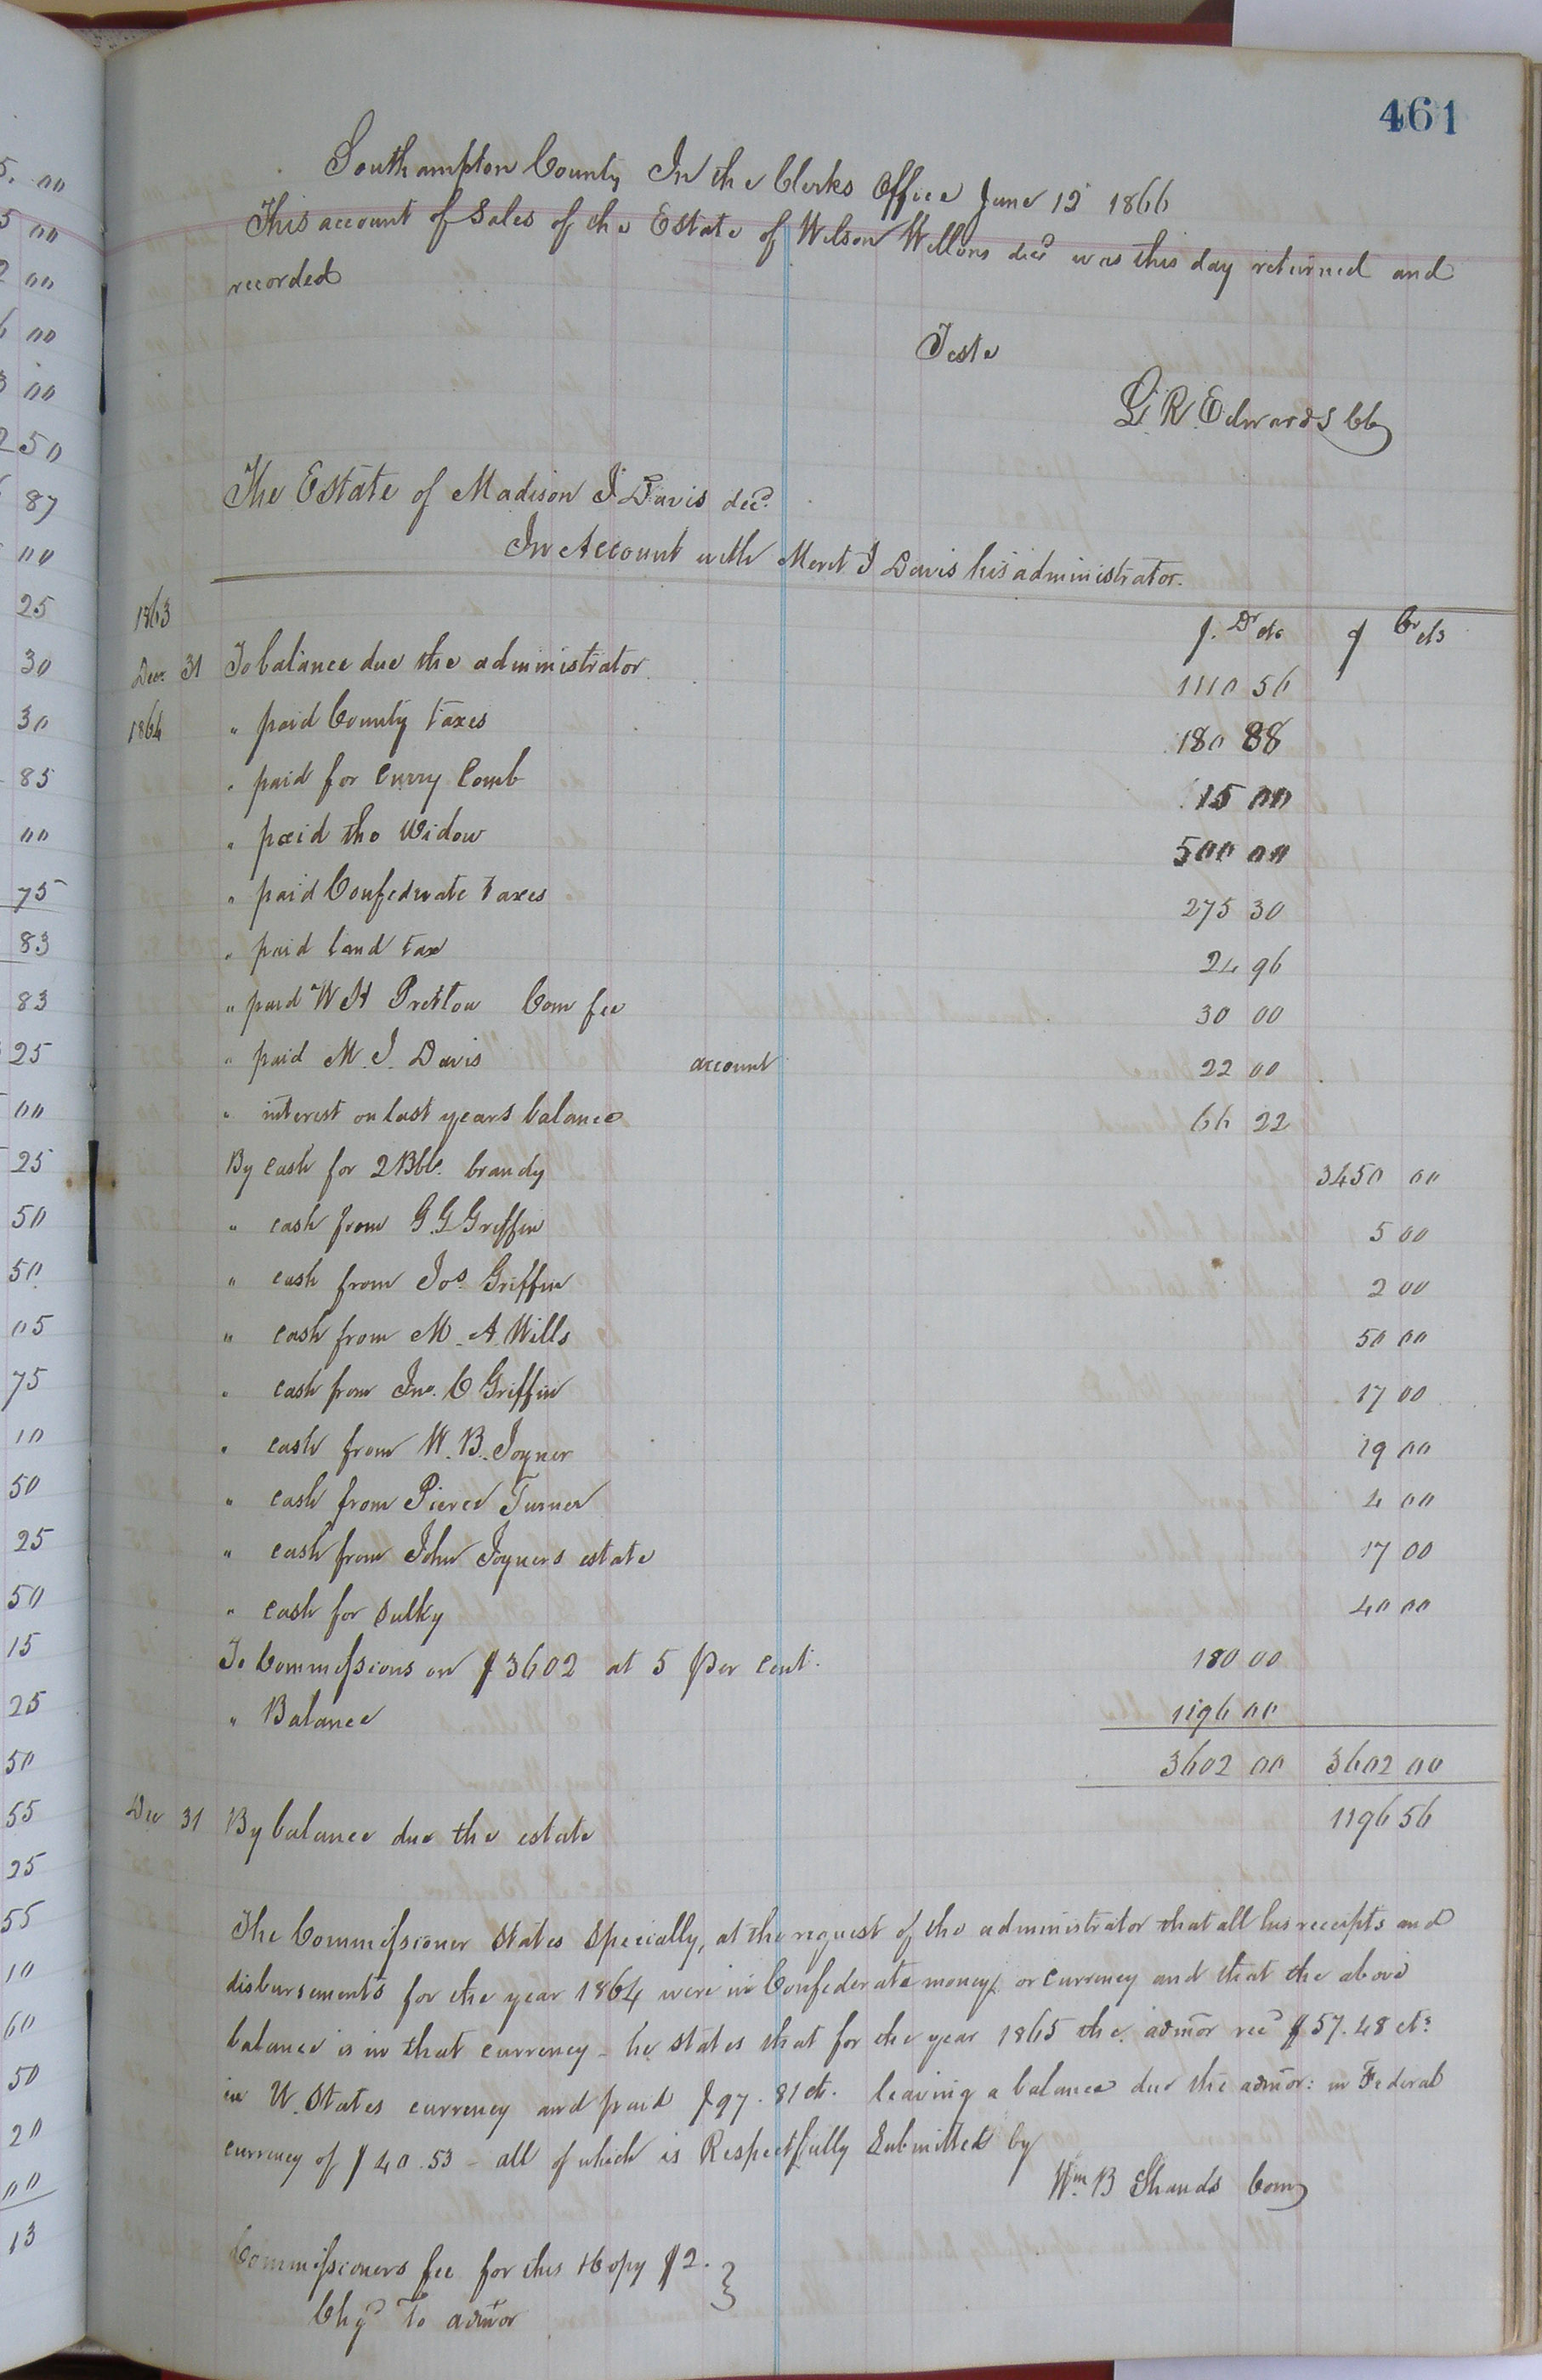 461
Southampton County In the Clerks Office June 12 1866
This account of Sales of the Estate of Wilson Wellons decd was this day returned and
recorded
Teste
L. R. Edwards Clk
The Estate of Madison J Davis decd.
In Account with Merit J Davis his administrator.
1863 $. Dr cts $ Cr cts
Decr 31 To balance due the administrator. 1110 56
1864 " paid County taxes 180 88
" paid for Curry Comb 15 00
" paid the Widow 500 00
" paid Confederate taxes 275 30
" paid land tax 24 96
" paid W H Pretlow Com fee 30 00
" paid M. J. Davis account 22 00
" interest on last years balance 66 22
By cash for 2 Bbls. brandy 3450 00
" cash from G. G. Griffin 5 00
" cash from Jos Griffin 2 00
" cash from M. A. Wills 50 00
" cash from Jno. C Griffin 17 00
" cash from W. B. Joyner 19 00
" cash from Pierce Turner 4 00
" cash from John Joyners estate 17 00
" cash for Sulky 40 00
To Commissions on $3602 at 5 per cent. 180 00
" Balance 1196 00
3602 00 3602 00
Dec 31 By balance due the estate 1196 56
The Commissioner States Specially, at the request of the administrator that all his receipts and
disbursements for the year 1864 were in Confederate money or currency and that the above
balance is in that currency - he states that for the year 1865 the admor recd $57.48 cts
in U. States currency and paid $97.81 cts. leaving a balance due the admor: in Federal
currency of $40.53 - all of which is Respectfully Submitted by
Wm. B Shands Com
Commissioners fee for this & Copy $2. }
Chgd To admor
5. 00
5 00
2 00
6 00
3 00
2 50
87
00
25
30
30
85
00
75
83
83
25
00
25
50
50
05
75
10
50
25
50
15
25
50
55
25
55
10
60
50
20
00
13